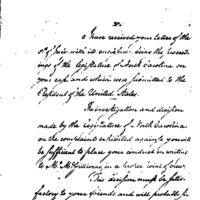 I have received your letter of the
of June with its enclosure being the proceed-
ings of the legislature of North Carolina on
your case and which were submitted to the
President of the United States.
The investigation and decision
made by the legislature of North Carolina
on the complaint exhibited against you will
be sufficient to place your conduct in relation
to Mr McGillivray in a proper point of view.
This decision must be satis-
factory to your friends and will probably